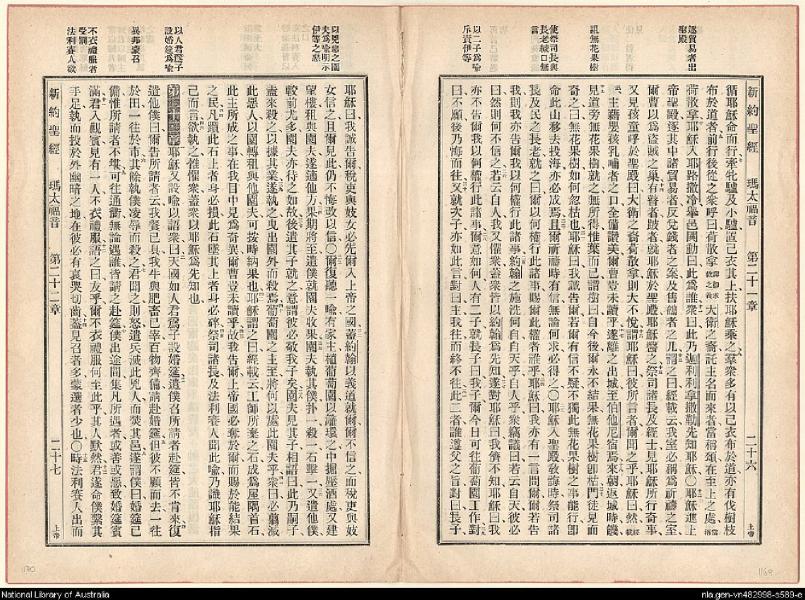 逐貿易者出
聖殿
詛無花果樹
使祭司長與
長老緘口無
以二子爲喻
斥責伊等
新約聖經 瑪太福音 第二十一章 二十六 上帝
循耶穌命而行牽牝驢及小驢置己衣其上扶耶穌乘之羣衆多有以己衣布於道亦有伐樹枝
布於道者前行後從之衆呼曰荷散拿大衛之裔託主名而來者當稱頌在至上之處
荷散拿耶穌入耶路撒冷舉邑閧動曰此爲誰衆曰此乃迦利利拿撒勒先知耶穌○耶穌進上
帝聖殿逐其中諸貿易者反兌錢者之案及售鴿者之几謂之曰經載云我室必稱爲祈禱之室
爾曹以爲盜賊之巢有瞽者跛者就耶穌於聖殿耶穌醫之祭司諸長及經士見耶穌所行奇事
又見孩童呼於聖殿曰大衛之裔荷散拿則大不悅謂耶穌曰彼所言者爾聞之乎耶穌曰然經載
主藉嬰孩乳哺者之口全備讚美爾曹豈未讀乎遂離之出城至伯他尼宿焉來朝返城時饑
見道旁無花果樹就之無所得惟葉而已謂樹曰自今後爾永不結果無花果樹卽枯門徒見而
奇之曰無花果樹如何忽枯也耶穌曰我誠告爾若爾有信不疑不獨此無花果樹之事能行卽
命此山移去投海亦必成焉且爾祈禱時有信無論何求必得之○耶穌入聖殿敎誨時祭司諸
長及民之長老就之曰爾以何權行此諸事賜此權者誰乎耶穌曰我亦有一言問爾爾若告
我則我亦告爾我以何權行此諸事約翰之施洗何自自天乎自人乎衆竊議曰若云自天彼必
曰然則何不信之若云自人我又懼衆蓋衆皆以約翰爲先知遂對耶穌曰我儕不知耶穌曰我
亦不告爾我以何權行此諸事意如何人有二子就長子曰我子爾今日可往葡萄園工作對
曰不願後乃悔而往又就次子亦如此言對曰主我往而終不往此二者誰遵父之旨對曰長子
以葡萄之園
夫爲喻明示
伊等之惡
以人君爲子
設婚筵爲喻
異邦蒙召
不衣禮服者
受罰
法利賽人欲
耶穌曰我誠告爾稅吏與妓女必先爾入上帝之國蓋約翰以義道就爾爾不信之而稅吏與妓
女信之且爾見此仍不悔改以信○爾復聽一喻有家主植葡萄園以籬環之中掘壓酒處又建
望樓租與園夫遂適他方果期將至遣僕就園夫收果園夫執其僕扑一殺一石擊一又遣他僕
較前尤多園夫亦待之如故後遣其子就之意謂彼必敬我子矣園夫見其子相語曰此乃嗣子
盍來殺之以據其業遂執之曳出園外而殺焉葡萄園之主至將何以處此園夫乎衆曰必翦滅
此惡人以園轉租與他園夫可按時納果也耶穌謂之曰經載云工師所棄之石成爲屋隅首石
此主所成之事在我目中見爲奇異爾曹豈未讀乎故我告爾上帝國必奪於爾而賜於能結果
之民凡躓此石上者身必損此石墜其上者身必碎祭司諸長及法利賽人聞此喻乃識耶穌指
己而言欲執之惟懼衆蓋衆以耶穌爲先知也
第二十二章 耶穌又設喻以語衆曰天國如人君爲子設婚筵遣僕召所請者赴筵皆不肯來復
遣他僕曰爾告所請者云我餐已具我牛與肥畜已宰百物齊備請赴婚筵但彼不顧而去一往
於田一往於市其餘執僕凌辱而殺之君聞之則怒遣兵滅此兇人而焚其邑遂謂僕曰婚筵已
備惟所請者不堪可往通衢無論遇誰皆請之赴筵僕出途間集凡所遇者或善或惡致婚筵賓
滿君入觀賓見有一人不衣禮服語之曰友乎爾不衣禮服何至此乎其人默然君遂命僕縶其
手足執而投於外幽暗之地在彼必有哀哭切齒蓋見召者多蒙選者少也○時法利賽人出而
新約聖經 瑪太福音 第二十二章 二十七 上帝
National Library of Australia
nla.gen-vn482998-s589-e